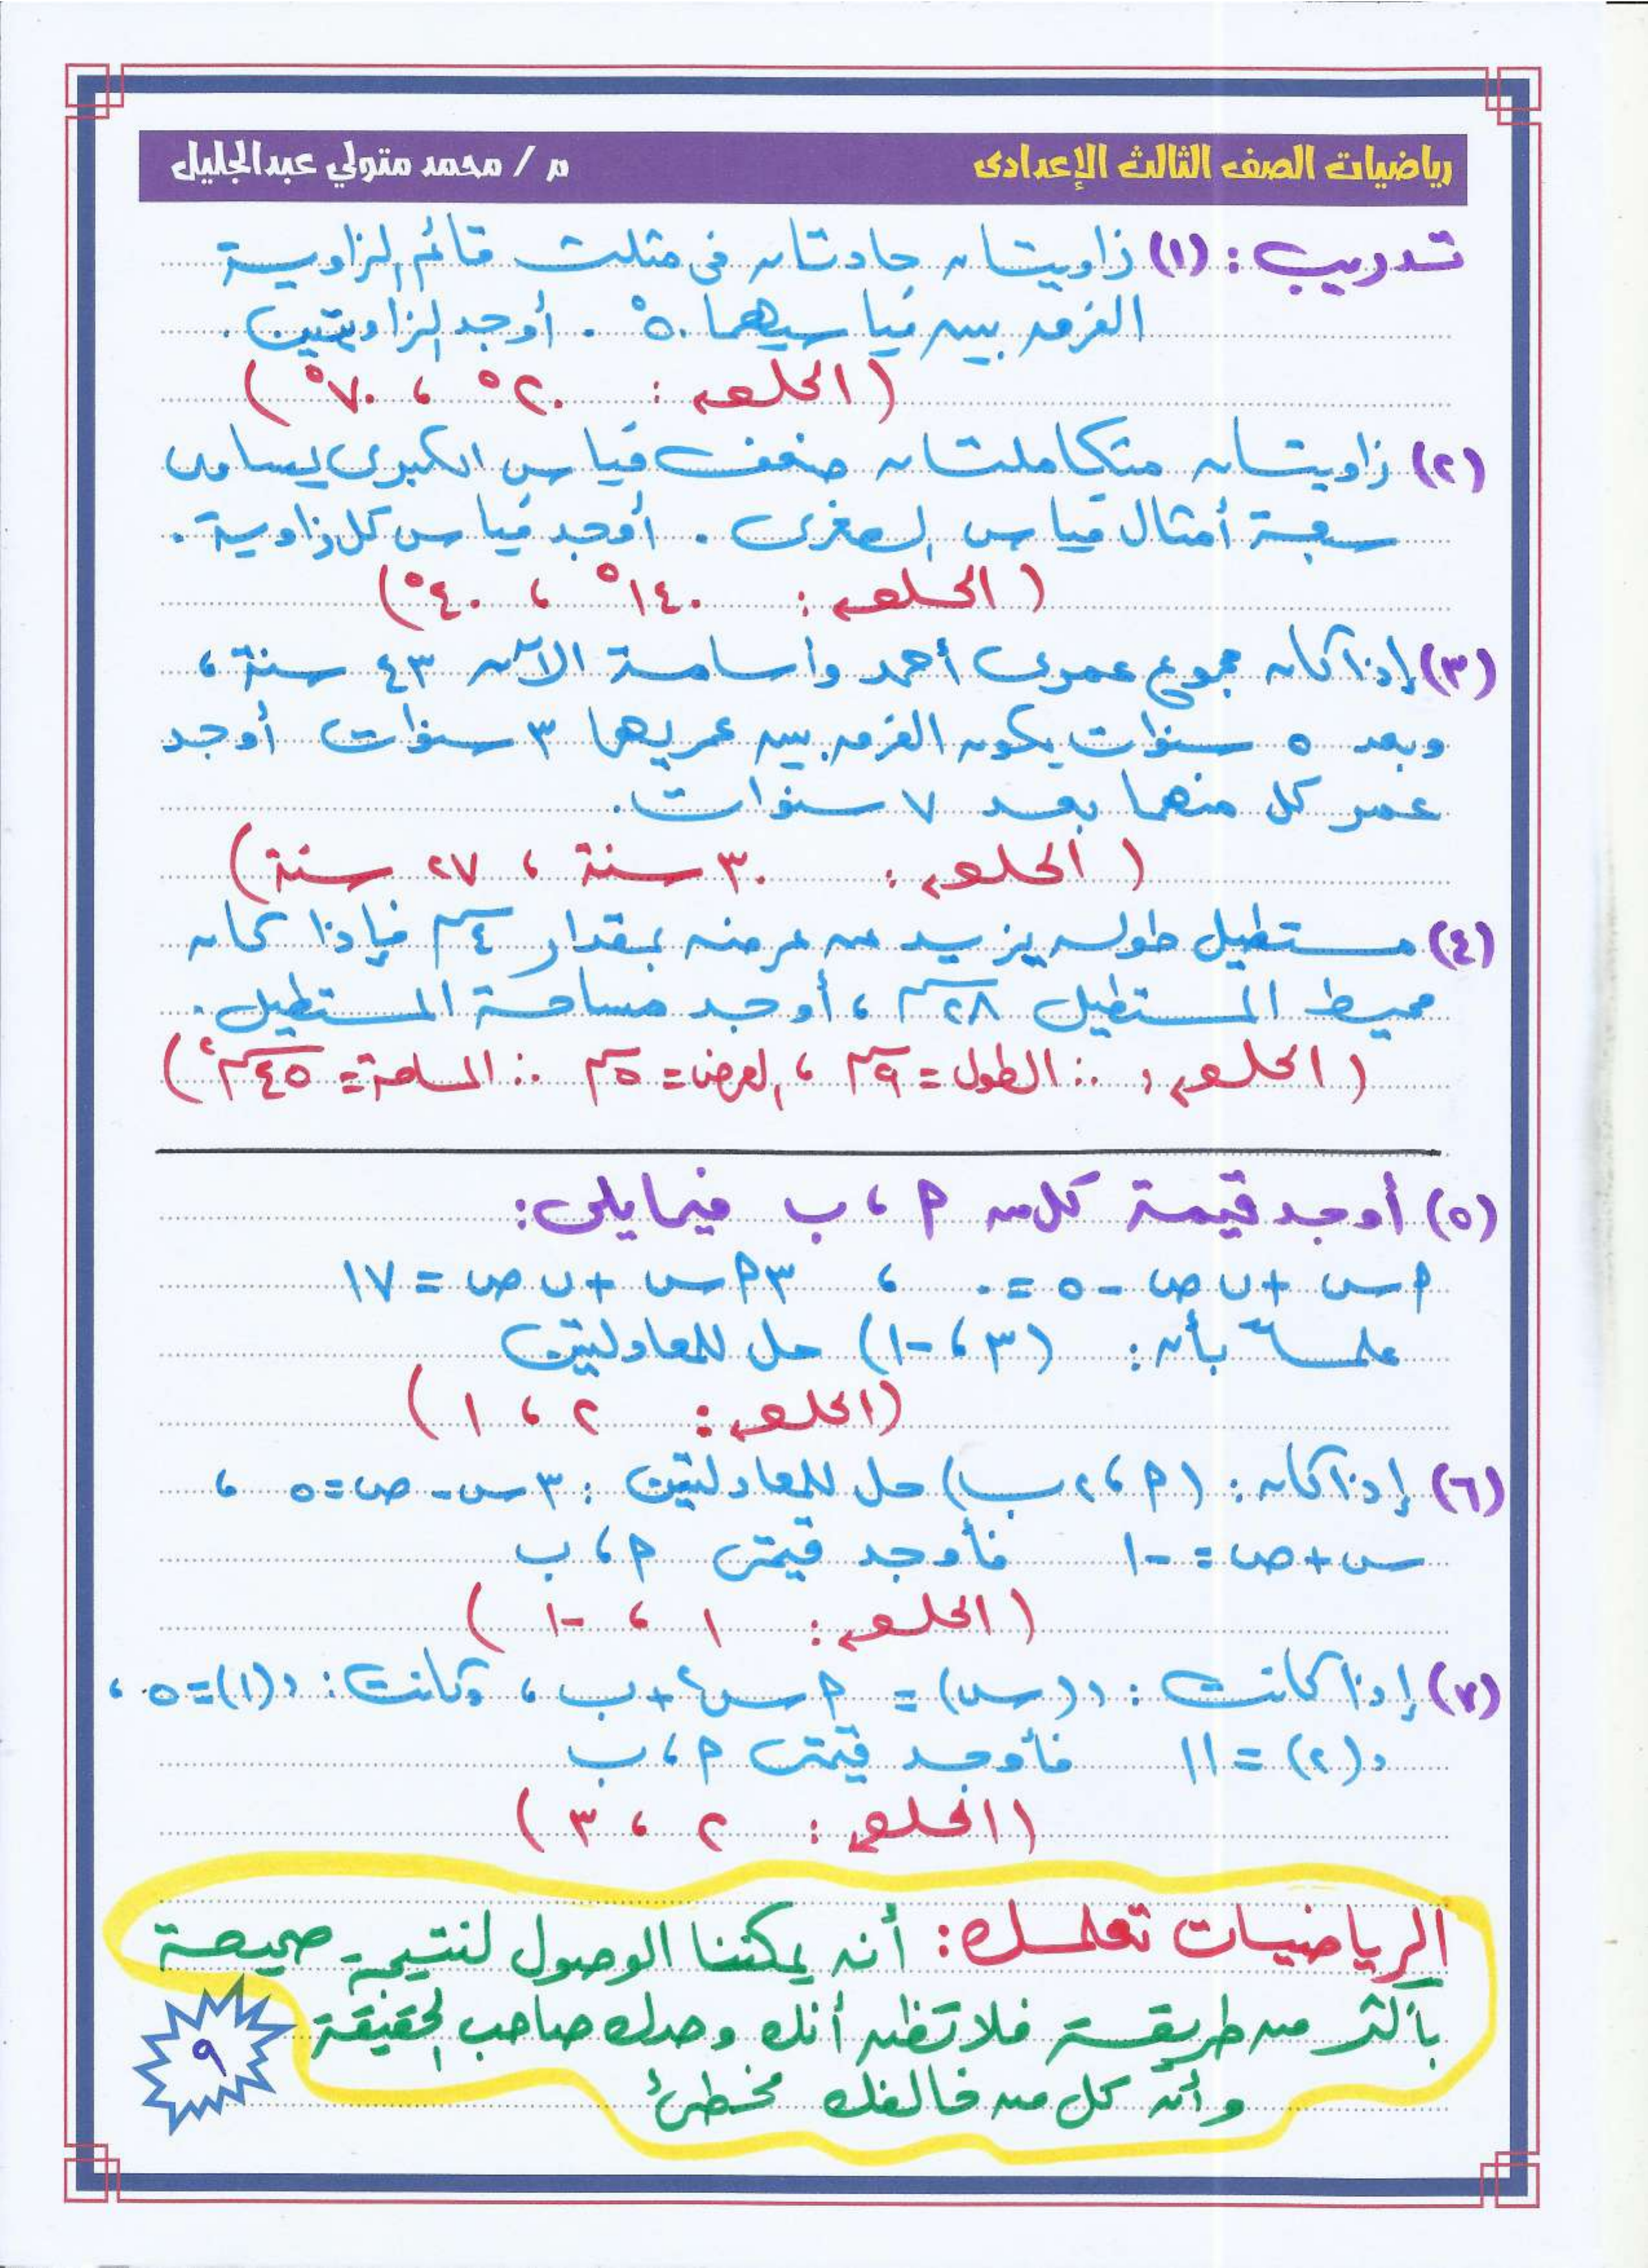 رياضيات الصف الثالث الإعدادى
م / محمد متولي عبدالجليل
تدريب : (١) زاويتان حادتان فى مثلث قائم الزاوية
الفرق بين قياسيهما ٥٠° . أوجد الزاويتين .
( الحلول : ٢٠° ، ٧٠° )
(٢) زاويتان متكاملتان ضعف قياس الكبرى يساوى
سبعة أمثال قياس الصغرى . أوجد قياس كل زاوية .
( الحلول : ١٤٠° ، ٤٠° )
(٣) إذا كان مجموع عمرى أحمد وأسامة الآن ٤٣ سنة ،
وبعد ٥ سنوات يكون الفرق بين عمريهما ٣ سنوات أوجد
عمر كل منهما بعد ٧ سنوات .
( الحلول : ٣٠ سنة ، ٢٧ سنة )
(٤) مستطيل طوله يزيد عن عرضه بمقدار ٤سم فإذا كان
محيط المستطيل ٢٨سم ، أوجد مساحة المستطيل .
( الحلول : ∴ الطول = ٩سم ، العرض = ٥سم ∴ المساحة = ٤٥سم٢ )
(٥) أوجد قيمة كل من م ، ب فيما يلى :
م س + ب ص - ٥ = ٠ ، ٣ م س + ب ص = ١٧
علماً بأن : (٣ ، -١) حل للمعادلتين
(الحلول : ٢ ، ١ )
(٦) إذا كان : (م ، ٢ب) حل للمعادلتين : ٣س - ص = ٥ ،
س + ص = -١ فأوجد قيمتى م ، ب
( الحلول : ١ ، -١ )
(٧) إذا كانت : د(س) = م س٢ + ب ، وكانت : د(١) = ٥ ،
د(٢) = ١١ فأوجد قيمتى م ، ب
( الحلول : ٢ ، ٣ )
الرياضيات تعلمك : أنه يمكننا الوصول لنتيجة صحيحة
بأكثر من طريقة فلا تظن أنك وحدك صاحب الحقيقة
وأن كل من خالفك مخطئ
٩